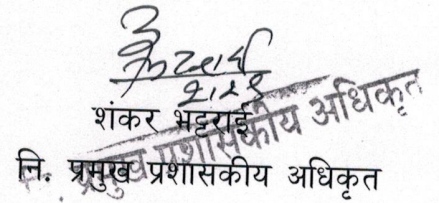 शंकर भट्टराई
नि. प्रमुख प्रशासकीय अधिकृत
प्रमुख प्रशासकीय अधिकृत